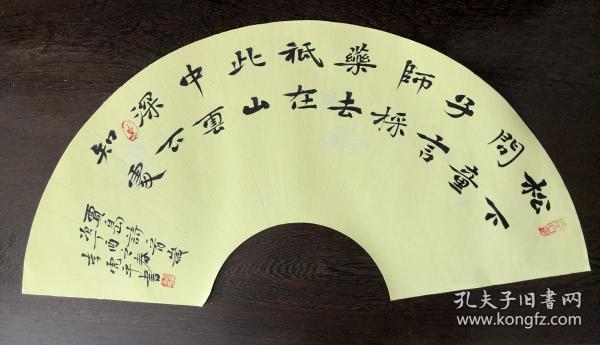 松下
問童
子言
師採
藥去
祇在
此山
中雲
深不
知處
賈島詩
次丁酉春
李虎平書
孔夫子旧书网
www.kongfz.com